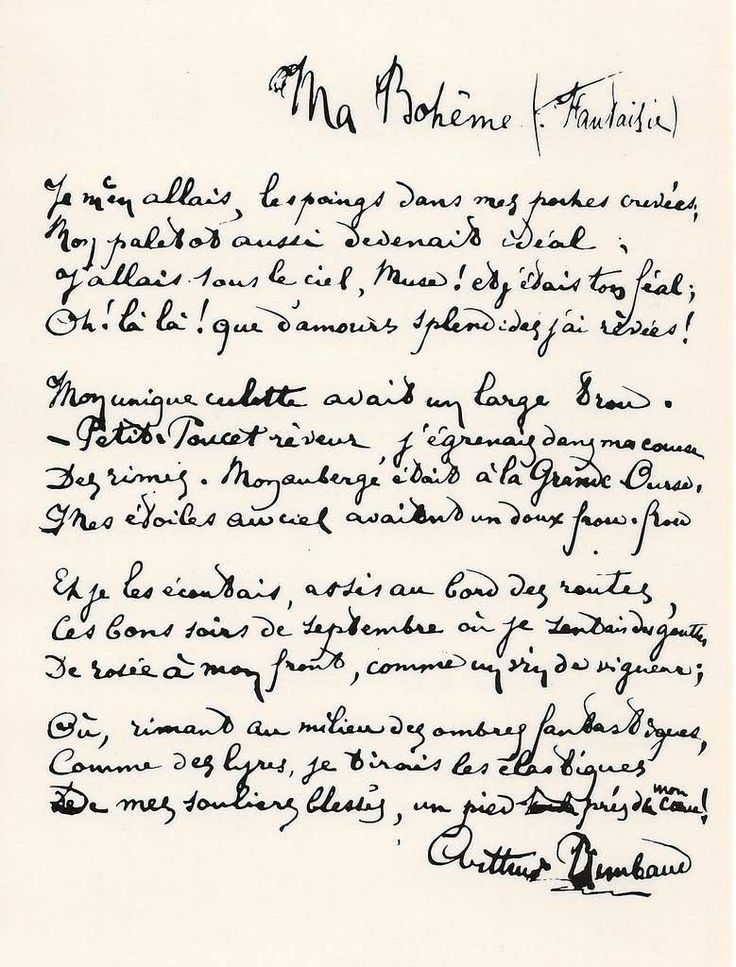 Ma Bohême (. Fantaisie)
Je m'en allais, les poings dans mes poches crevées;
Mon paletot aussi devenait idéal;
J'allais sous le ciel, Muse! et j'étais ton féal;
Oh! là là! que d'amours splendides j'ai rêvées!
Mon unique culotte avait un large trou.
– Petit-Poucet rêveur, j'égrenais dans ma course
Des rimes. Mon auberge était à la Grande-Ourse.
Mes étoiles au ciel avaient un doux frou-frou
Et je les écoutais, assis au bord des routes,
Ces bons soirs de septembre où je sentais des gouttes
De rosée à mon front, comme un vin de vigueur;
Où, rimant au milieu des ombres fantastiques,
Comme des lyres, je tirais les élastiques
De mes souliers blessés, un pied près de mon coeur!
Arthur Rimbaud